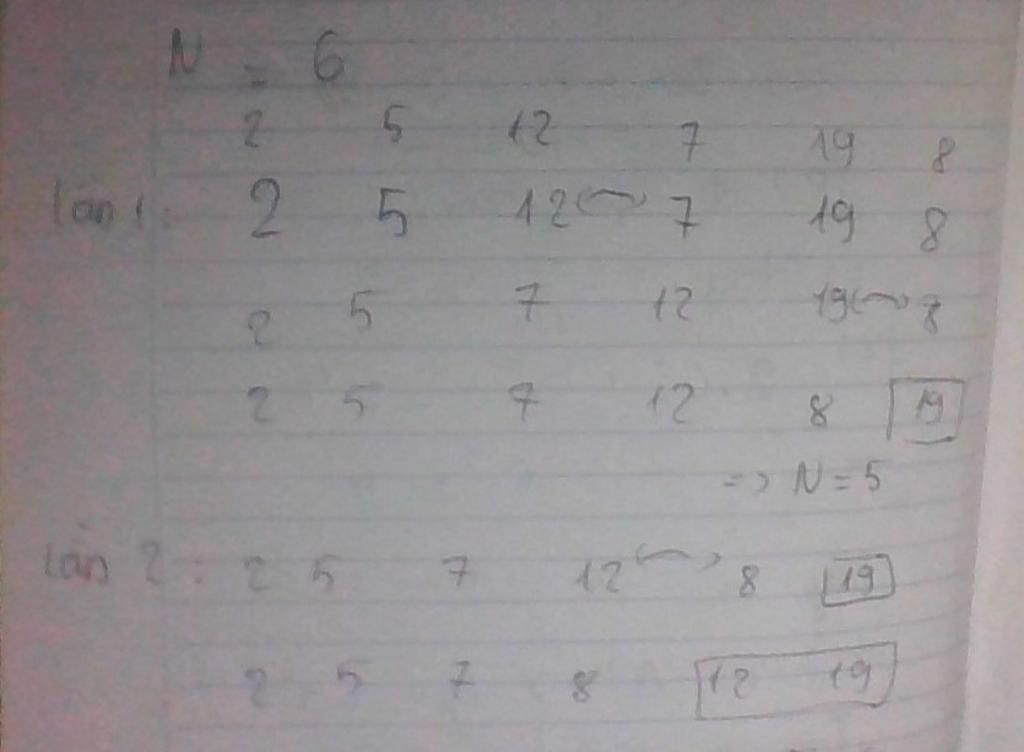 N = 6
2 5 12 7 19 8
lần 1: 2 5 12 7 19 8
2 5 7 12 19 8
2 5 7 12 8 19
=> N = 5
lần 2: 2 5 7 12 8 19
2 5 7 8 12 19